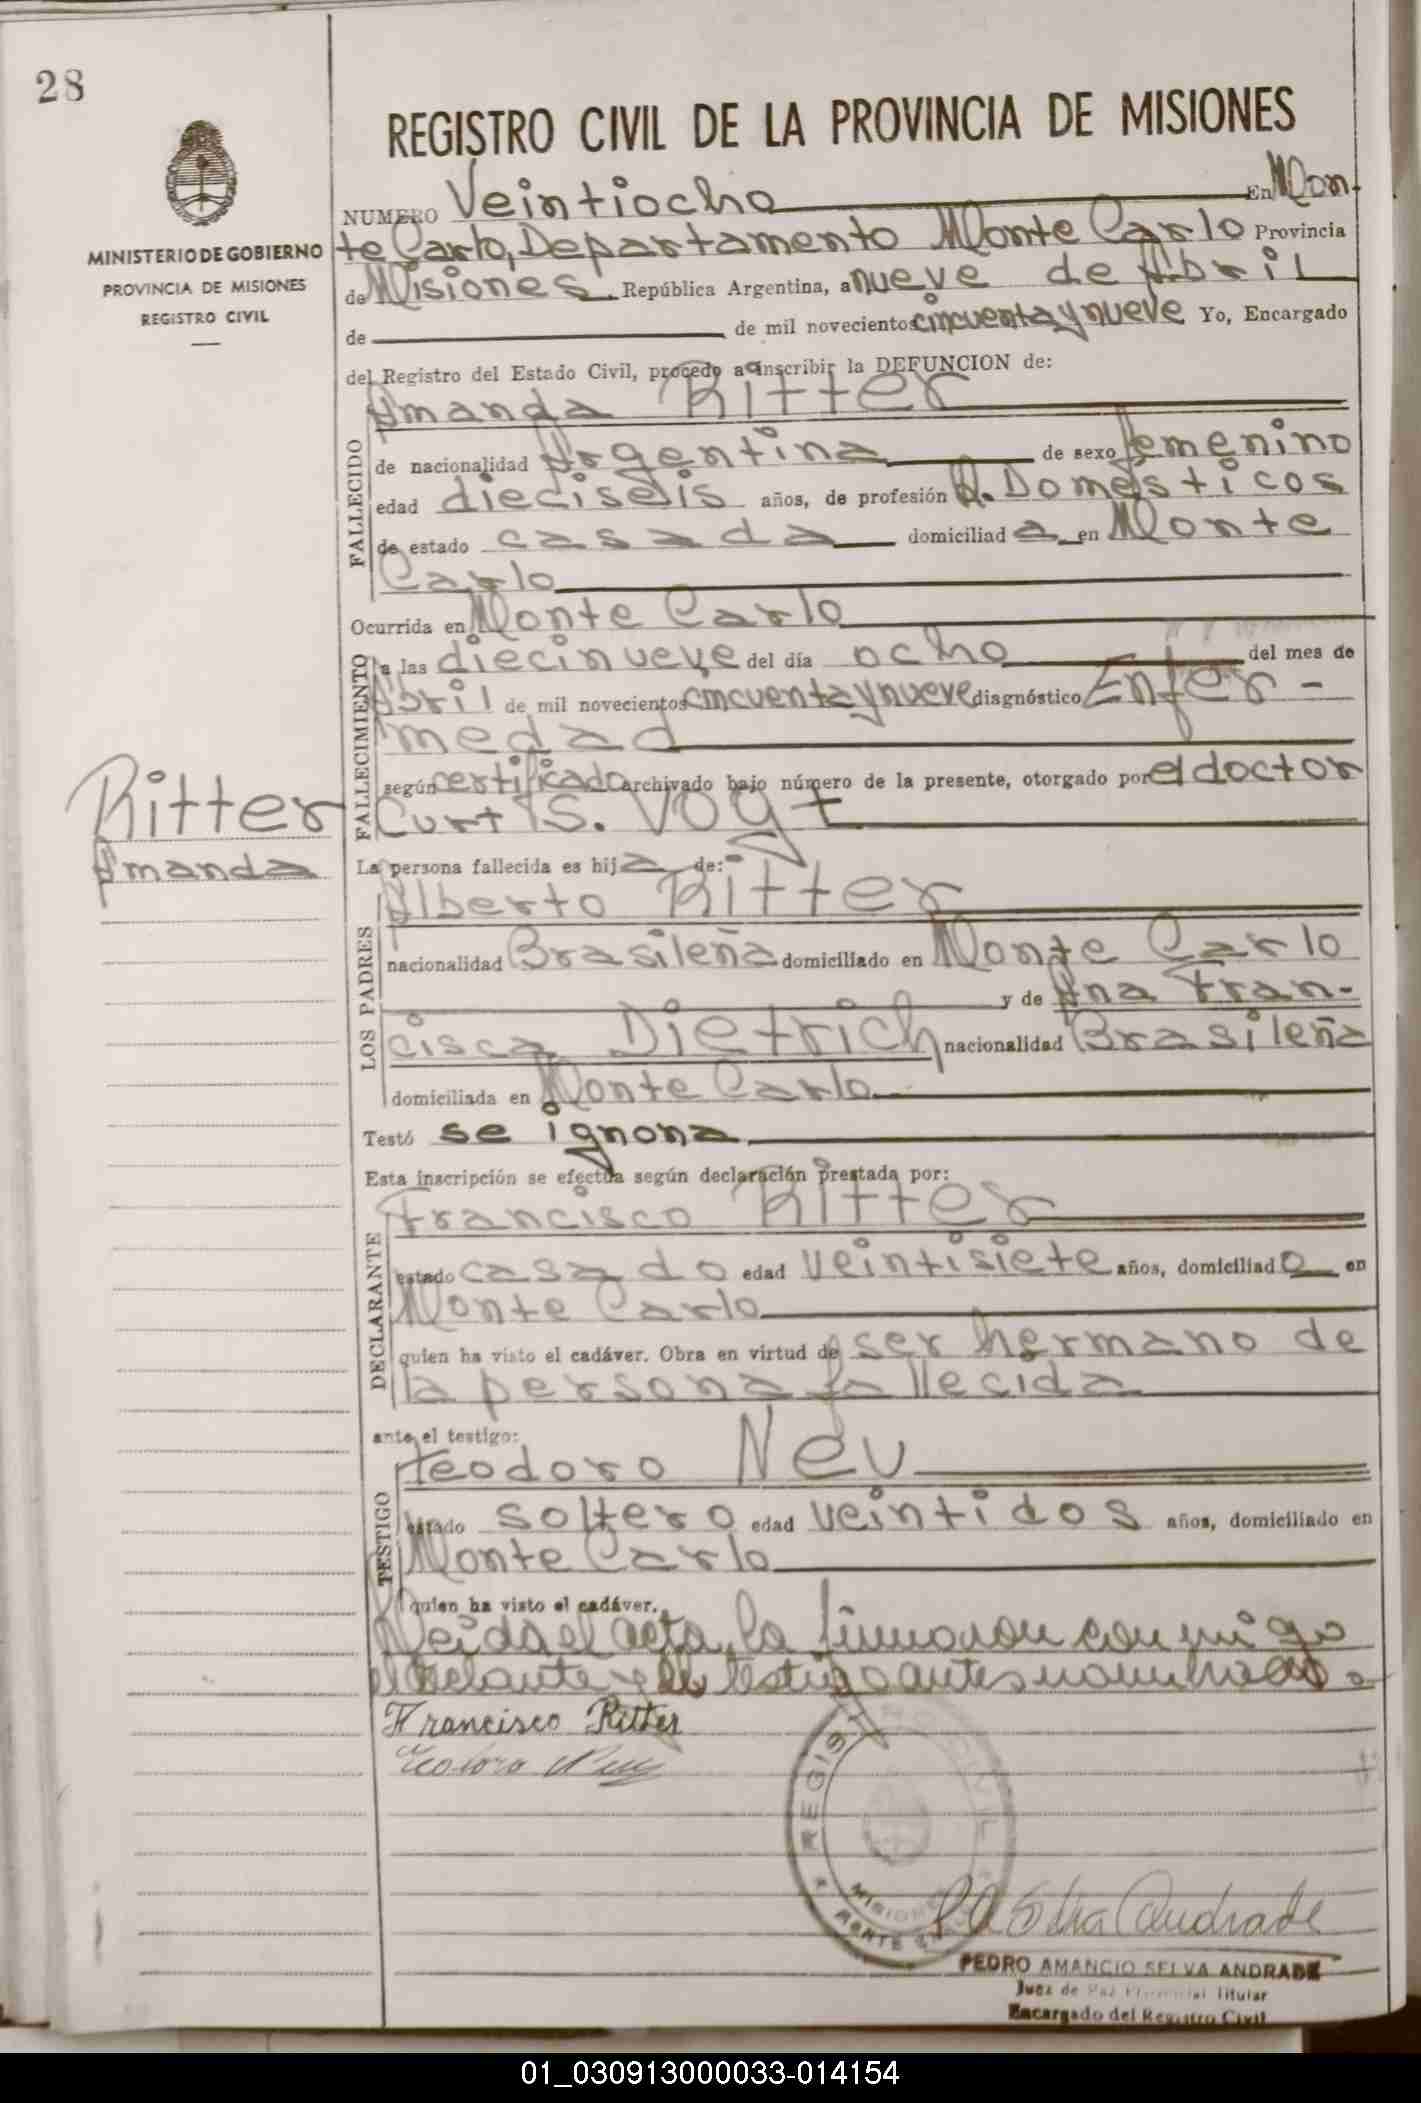 28
REGISTRO CIVIL DE LA PROVINCIA DE MISIONES
MINISTERIO DE GOBIERNO
PROVINCIA DE MISIONES
REGISTRO CIVIL
NUMERO Veintiocho En Mon-
te Carlo, Departamento Monte Carlo Provincia
de Misiones. República Argentina, a nueve de Abril
de de mil novecientos cincuenta y nueve Yo, Encargado
del Registro del Estado Civil, procedo a inscribir la DEFUNCION de:
Amanda Ritter
FALLECIDO
de nacionalidad Argentina de sexo femenino
edad dieciseis años, de profesión Q. Domésticos
de estado casada domiciliad a en Monte
Carlo
Ocurrida en Monte Carlo
FALLECIMIENTO
a las diecinueve del día ocho del mes de
Abril de mil novecientos cincuenta y nueve diagnóstico Enfer-
medad
según certificado archivado bajo número de la presente, otorgado por el doctor
Curt S. Vogt
Ritter
Amanda
La persona fallecida es hij a de:
Alberto Ritter
LOS PADRES
nacionalidad Brasileña domiciliado en Monte Carlo
y de Ana Fran-
cisca Dietrich nacionalidad Brasileña
domiciliada en Monte Carlo
Testó se ignora
Esta inscripción se efectúa según declaración prestada por:
Francisco Ritter
DECLARANTE
estado casado edad veintisiete años, domiciliad o en
Monte Carlo
quien ha visto el cadáver. Obra en virtud de ser hermano de
la persona fallecida
ante el testigo:
Teodoro Neu
TESTIGO
estado soltero edad veintidos años, domiciliado en
Monte Carlo
quien ha visto el cadáver.
Leida el acta, la firmaron conmigo
el y el testigo antes nombrados
Francisco Ritter
Teodoro Neu
REGISTRO CIVIL
MISIONES
MONTE CARLO
P A Selva Andrade
PEDRO AMANCIO SELVA ANDRADE
Juez de Paz Provincial Titular
Encargado del Registro Civil
01_030913000033-014154